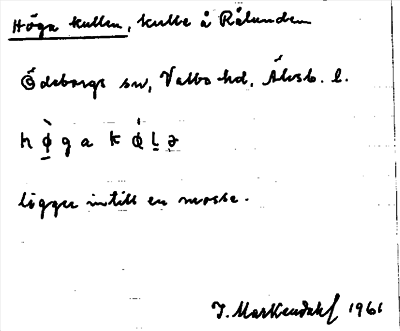 Höga kullen, kulle å Rålunden
Ödeborgs sn, Valbo hd, Älvsb. l.
h ø̠̀ g a k ǿ̠ l̠ ə
ligger intill en mosse.
J. Markendahl 1961